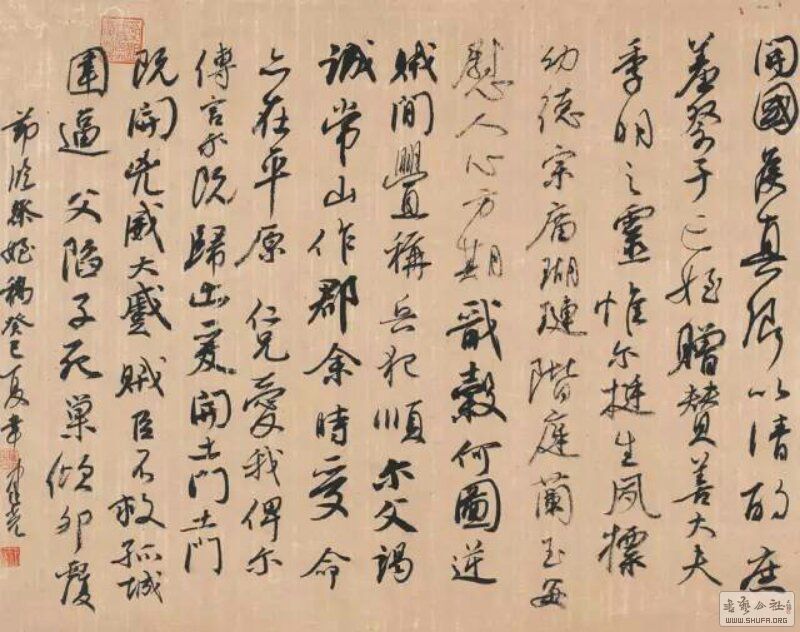 開國侯真卿以清酌庶
羞祭于亡姪贈贊善大夫
季明之靈惟尔挺生夙標
幼德宗廟瑚璉階庭蘭玉每
慰人心方期戩穀何圖逆
賊間舋稱兵犯順尔父竭
誠常山作郡余時受命
亦在平原仁兄愛我俾尔
傳言尔既歸止爰開土門土門
既開兇威大蹙賊臣不救孤城
圍逼父陷子死巢傾卵覆
節臨祭姪稿癸巳夏
書艺公社
WWW.SHUFA.ORG